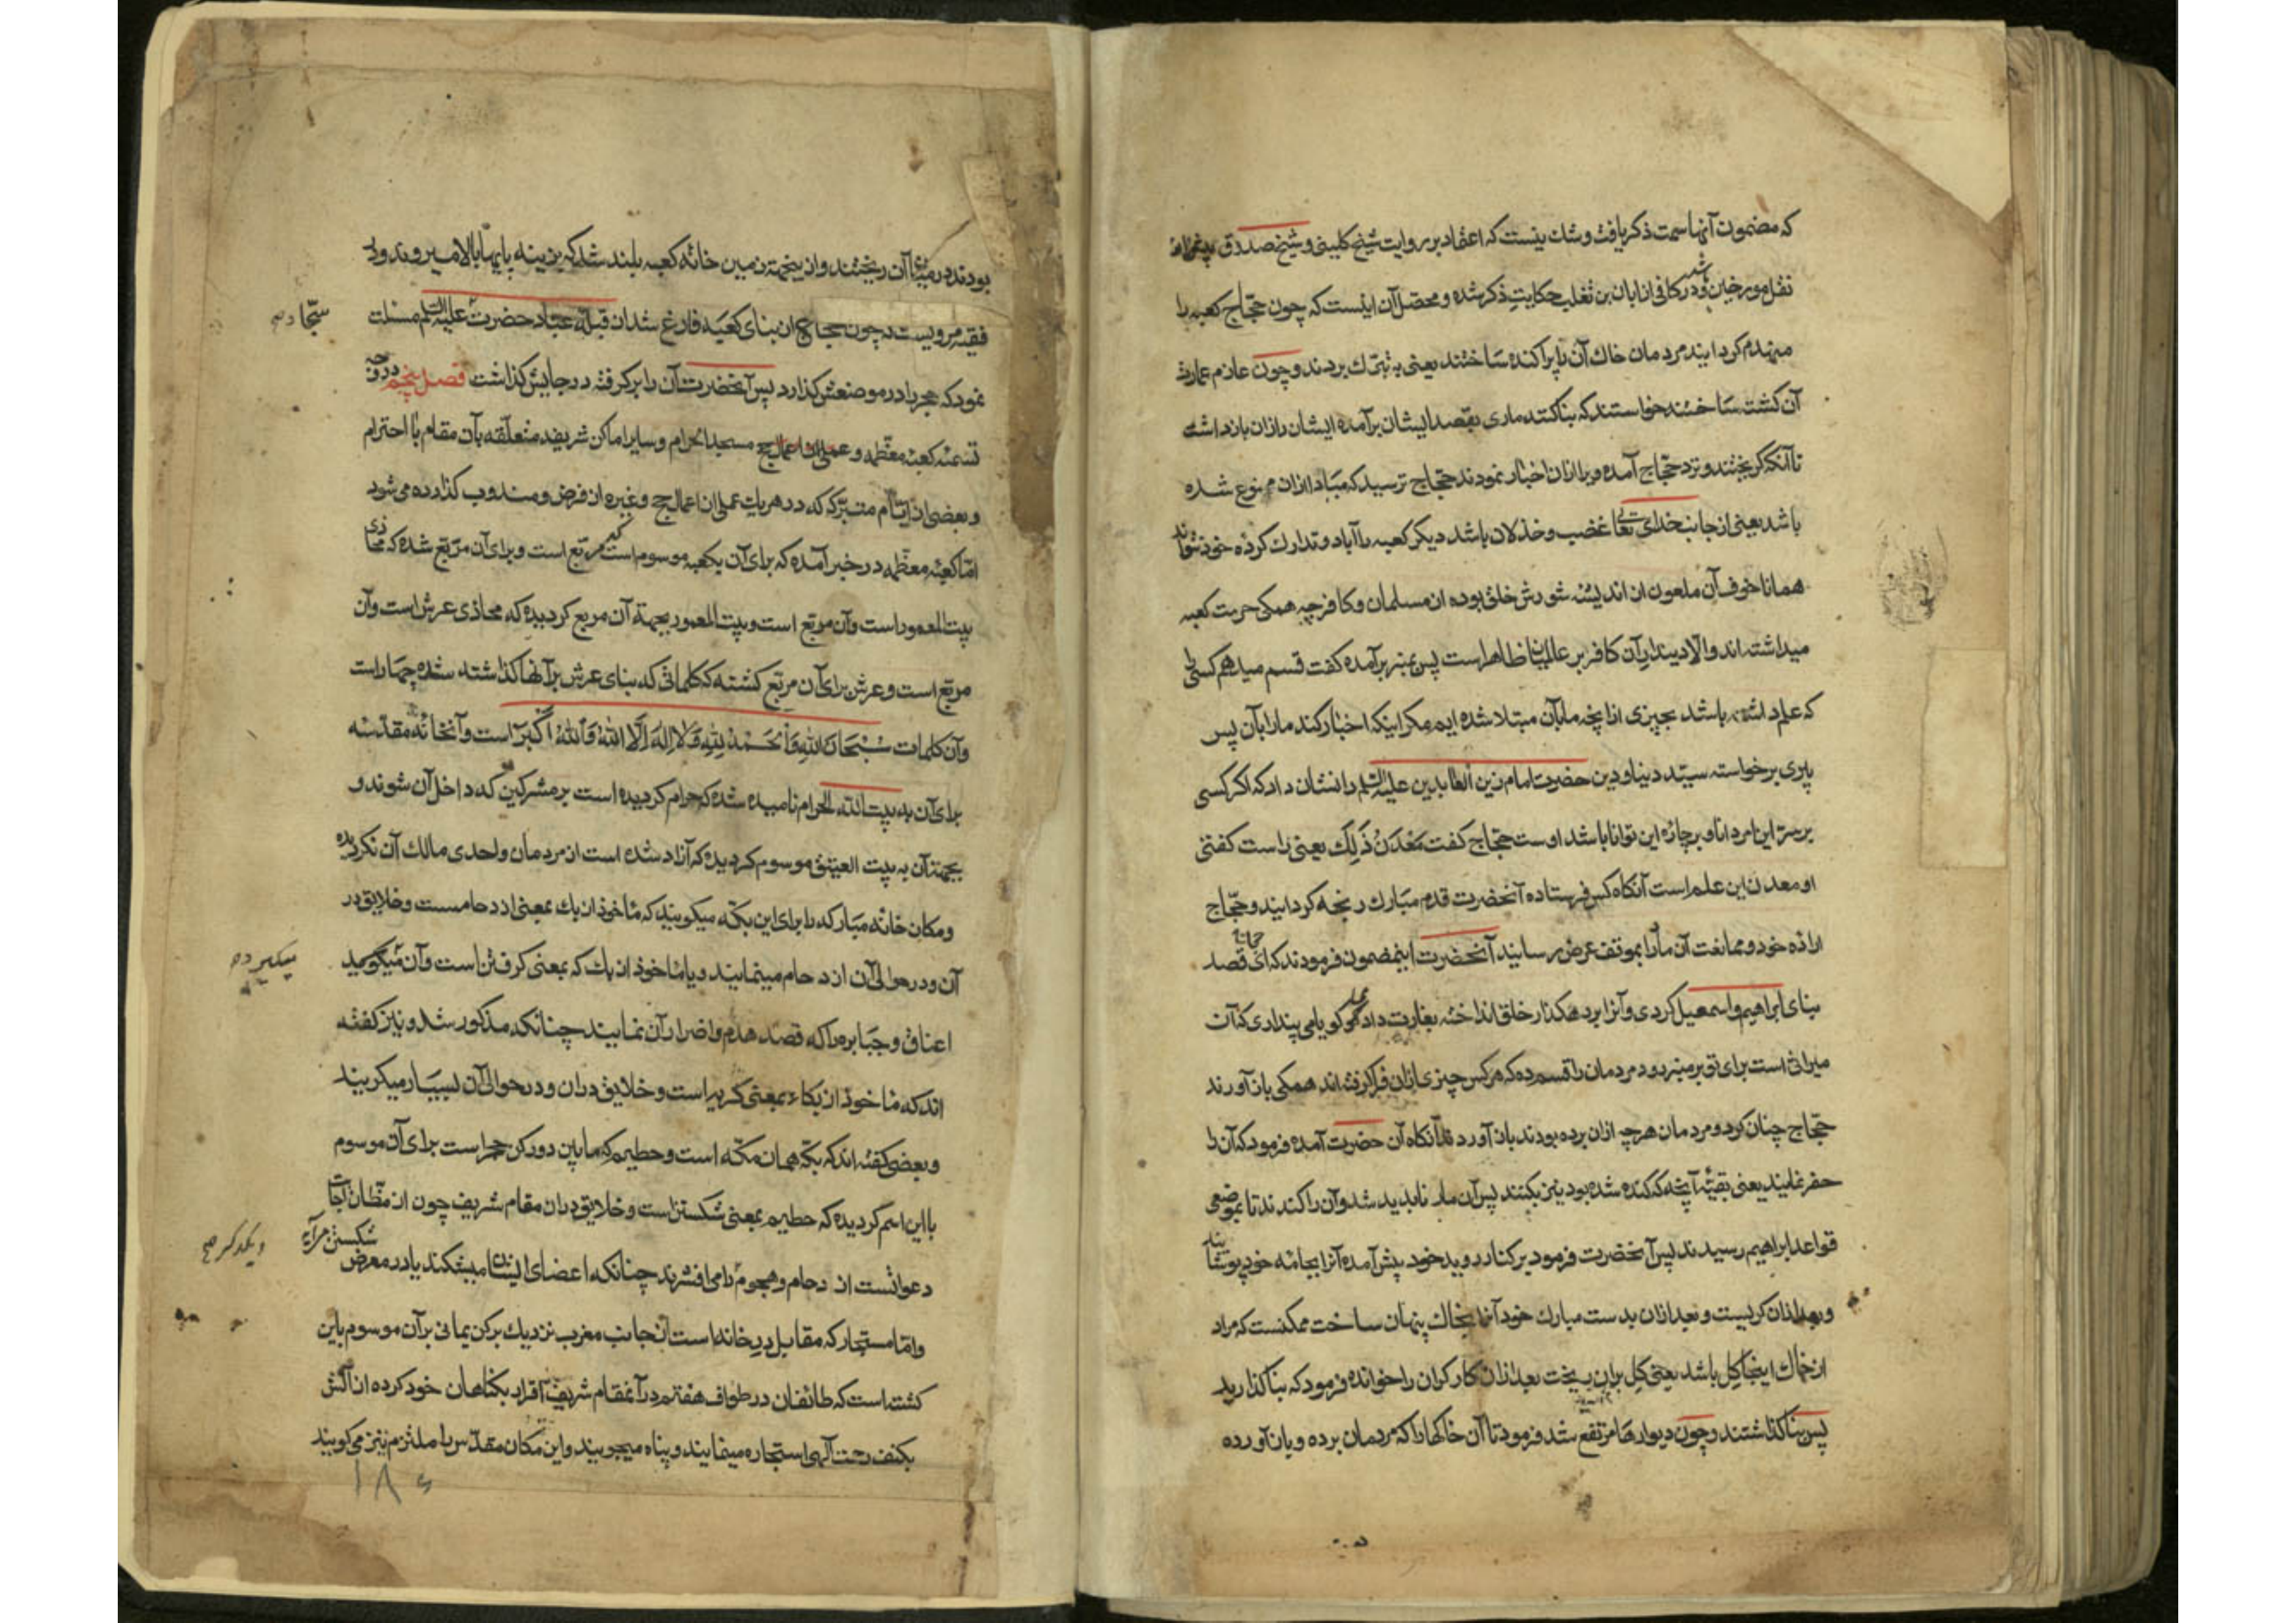 که مضمون آنها سمت ذکر یافت و شك نیست که اعتماد بر روایت شیخ کلینی و شیخ صدوق بیشتر از
نقل مورخین باشد و در کافی از ابان بن تغلب حکایت ذکر شده و محصل آن اینست که چون حجّاج کعبه را
منهدم کردانید مردمان خاك آن را پراکنده ساختند یعنی به تبرّك بردند و چون عازم عمارت
آن کشت ساختند خواستند که بنا کنند ماری بقصد ایشان برآمده ایشان را ازان بازداشت
تا آنکه کریختند و نزد حجّاج آمده ویرا ازان اخبار نمودند حجّاج ترسید که مبادا ازان ممنوع شده
باشد یعنی از جانب خدای تعا غضب و خذلان باشد دیکر کعبه را آباد و تدارك کرده خود نتواند
همانا خوف آن ملعون از اندیشه شورش خلق بوده از مسلمان و کافر چه همکی حرمت کعبه
میداشته اند والّا دینداری آن کافر بر عالمیان ظاهر است پس بمنبر برآمده کفت قسم میدهم کسی را
که علم داشته باشد بچیزی ازانچه ما بآن مبتلا شده ایم مکر اینکه اخبار کند ما را بآن پس
پیری برخواسته سیّد دنیا و دین حضرت امام زین العابدین علیه السلم را نشان داد که اکر کسی
بر سرّ این امر دانا و بر چارهٔ این توانا باشد اوست حجّاج کفت مَعْدَنُ ذَلِكَ یعنی راست کفتی
او معدن این علم است آنکاه کس فرستاده آنحضرت قدم مبارك رنجه کردانید و حجّاج
اراده خود و ممانعت آن مار را بموقف عرض رسانید آنحضرت اینمضمون فرمودند که ای حجاج قصد
بنای ابراهیم و اسمعیل کردی و آنرا بر رهکذار خلق انداخته بغارت دادی کویا می پنداری که آن
میراثی است برای تو بر منبر رو و مردمان را قسم ده که هر کس چیزی ازان فرا کرفته اند همکی باز آورند
حجّاج چنان کرد و مردمان هرچه ازان برده بودند باز آوردند آنکاه آن حضرت آمده فرمود که آن را
حفر نمایند یعنی بقیّه آنچه که کنده شده بود نیز بکنند پس آن مار ناپدید شد و آن را کندند تا بموضع
قواعد ابراهیم رسیدند پس آنحضرت فرمود بر کنار روید خود پیش آمده آنرا بجامه خود پوشانید
و بعد ازان کریست و بعد ازان بدست مبارك خود آنرا بخاك پنهان ساخت ممکنست که مراد
از خاك اینجا کِل باشد یعنی کِل بران ریخت بعد ازان کارکران را خوانده فرمود که بنا کذارید
پس بنا کذاشتند و چون دیوارها مرتفع شد فرمود تا آن خاکها را که مردمان برده و باز آورده
بودند در میان آن ریختند و از ینجهة زمین خانه کعبه بلند شد که بزینه پایها بالا میروند و در
فقیه مرویست که چون حجاج از بنای کعبه فارغ شد از قبله عباد حضرت علیه السلم مسئلت
سجاد صح
نمود که حجر را در موضعش کذارد پس آنحضرت آن را بر کرفته در جایش کذاشت فصل پنجم در وجه
تسمیه کعبه معظّمه و مسجد الحرام و سایر اماکن شریفه متعلّقه بآن مقام با احترام
و بعضی از ایّام متبرّکه که در هریك عملی از اعمال حج و غیره از فرض و مندوب کذارده می شود
امّا کعبه معظّمه در خبر آمده که برای آن بکعبه موسوم است که مربّع است و برای آن مربّع شده که محاذی
بیت المعمور است و آن مربّع است و بیت المعمور بجهة آن مربع کردیده که محاذی عرش است و آن
مربّع است و عرش برای آن مربّع کشته که کلماتی که بنای عرش بر آنها کذاشته شده چهار است
و آن کلمات سُبْحَانَ اللهِ وَالْحَمْدُ لِلهِ وَلَا إِلٰهَ إِلَّا اللهُ وَاللهُ أَكْبَرُ است و آنخانهٔ مقدّسه
برای آن به بیت الله الحرام نامیده شده که حرام کردیده است بر مشرکین که داخل آن شوند و
بجهة آن به بیت العتیق موسوم کردیده که آزاد شده است از مردمان و احدی مالك آن نکردیده
و مکان خانه مبارکه را برای این بکّه میکویند که مأخوذ از بك بمعنی ازدحامست و خلایق در
آن و در حوالی آن ازدحام مینمایند و یا مأخوذ از بك که بمعنی کرفتن است و آن میگیرد
میگیرد صح
اعناق جبابره را که قصد هدم و اضرار آن نمایند چنانکه مذکور شد و نیز کفته
اند که مأخوذ از بکاء بمعنی کریه است و خلایق دران و در حوالی آن بسیار میکریند
و بعضی کفته اند که بکّه همان مکّه است و حطیم که مابین دو رکن حجر است برای آن موسوم
باین اسم کردیده که حطیم بمعنی شکستن است و خلایق دران مقام شریف چون از مظّان اجابت
دعوانست ازدحام و هجوم را می افشرند چنانکه اعضای ایشان میشکند یا در معرض شکستن در آید
و یکدکر صح
و امّا مستجار که مقابل در خانه است از جانب مغرب نزدیك برکن یمانی برآن موسوم باین
کشته است که طائفان در طواف هفتم در آنمقام شریف اقرار بکناهان خود کرده از آتش
بکنف رحمت آلهی استجاره مینمایند و پناه میجویند و این مکان مقدّس را ملتزم نیز می کویند